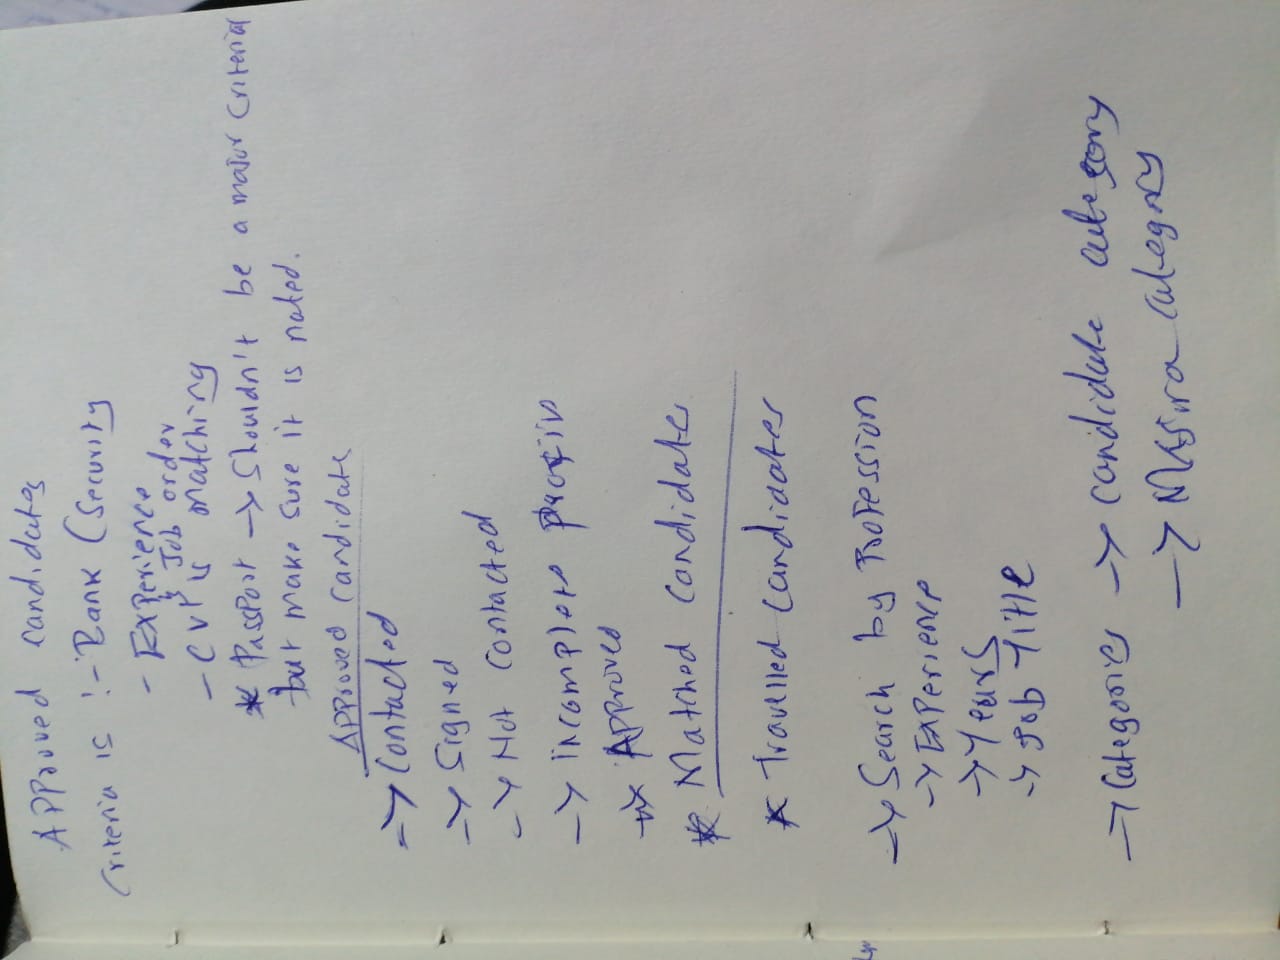 Approved candidates
Criteria is :- Rank (Security
- Experience
- CV & Job order matching
* Passport → Shouldn't be a major criteria
but make sure it is noted.
Approved candidate
→ Contacted
→ Signed
→ Not contacted
→ Incomplete
→ Approved
* Matched candidates
* Travelled candidates
→ Search by Profession
→ Experience
→ Years
→ Job Title
→ Categories → candidate category
→ category